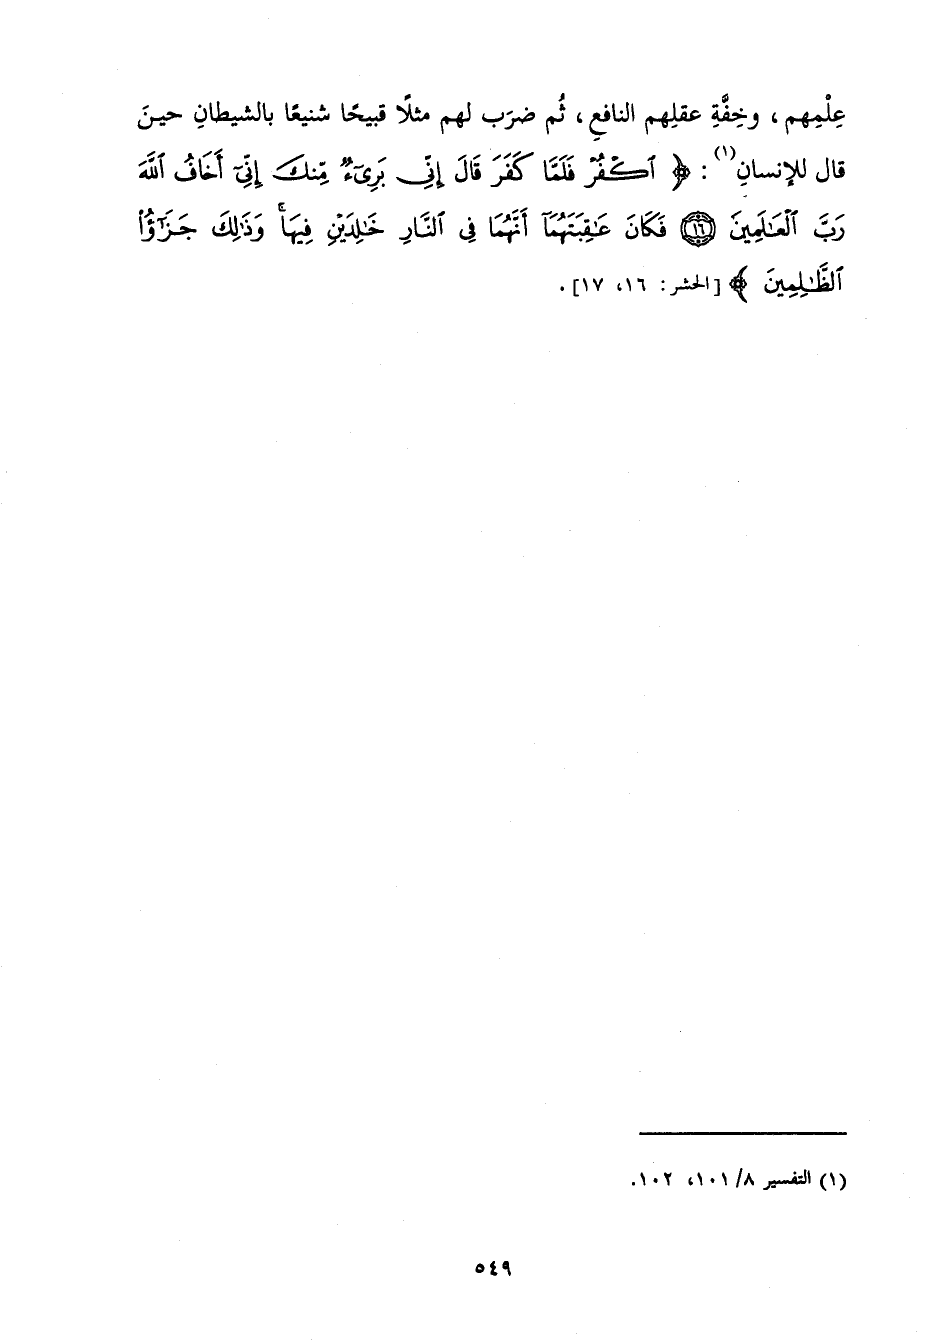 عِلْمِهم، وخِفَّةِ عقلِهم النافعِ، ثُم ضرَب لهم مثلًا قبيحًا شنيعًا بالشيطانِ حينَ
قال للإنسانِ(١): ﴿ ٱكْفُرْ فَلَمَّا كَفَرَ قَالَ إِنِّي بَرِيٓءٌ مِّنكَ إِنِّيٓ أَخَافُ ٱللَّهَ
رَبَّ ٱلْعَـٰلَمِينَ ۝١٦ فَكَانَ عَـٰقِبَتَهُمَآ أَنَّهُمَا فِي ٱلنَّارِ خَـٰلِدَيْنِ فِيهَاۚ وَذَٰلِكَ جَزَٰٓؤُا۟
ٱلظَّـٰلِمِينَ ﴾ [الحشر: ١٦، ١٧].
(١) التفسير ٨/ ١٠١، ١٠٢.
٥٤٩